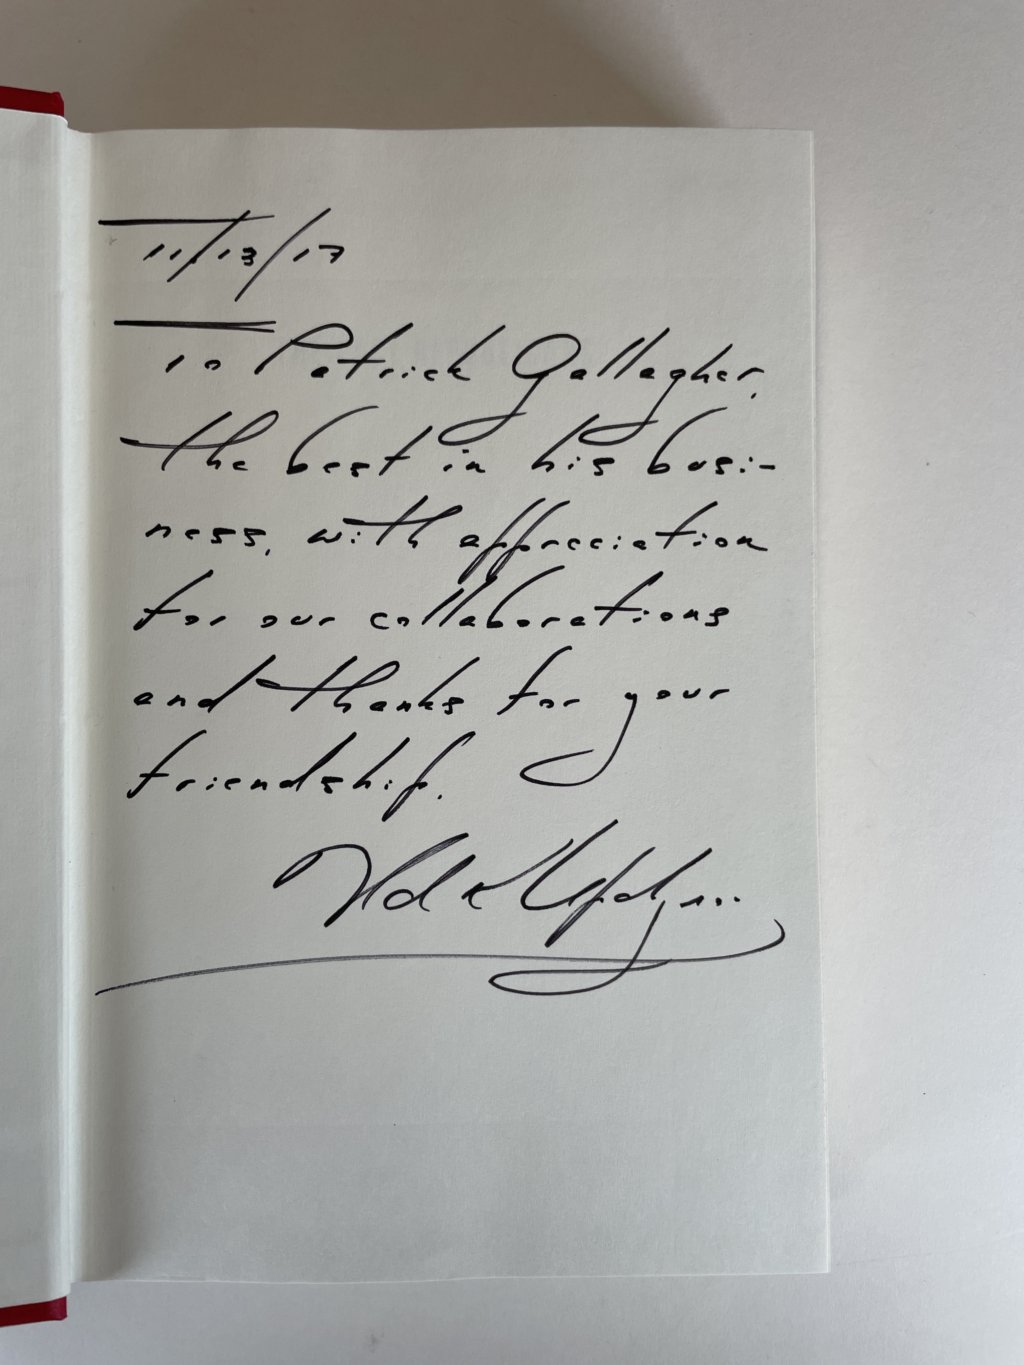 11/13/17
To Patrick Gallagher,
the best in his busi-
ness, with appreciation
for our collaborations
and thanks for your
friendship.